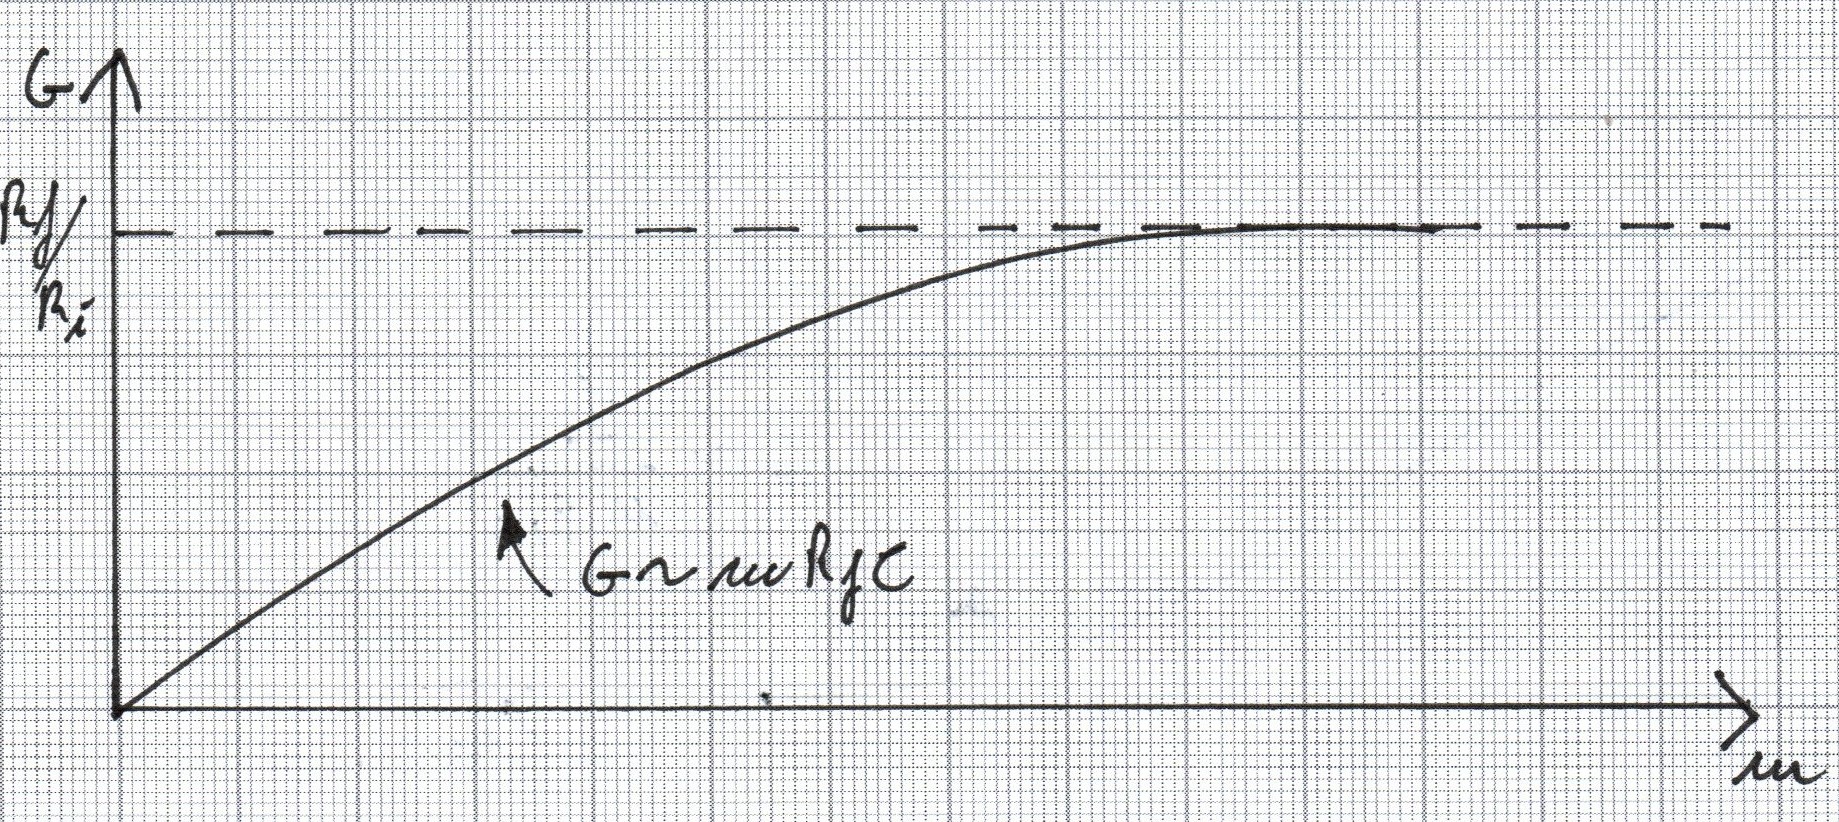 G
Rf/
Ri
G ~ ω Rf C
ω